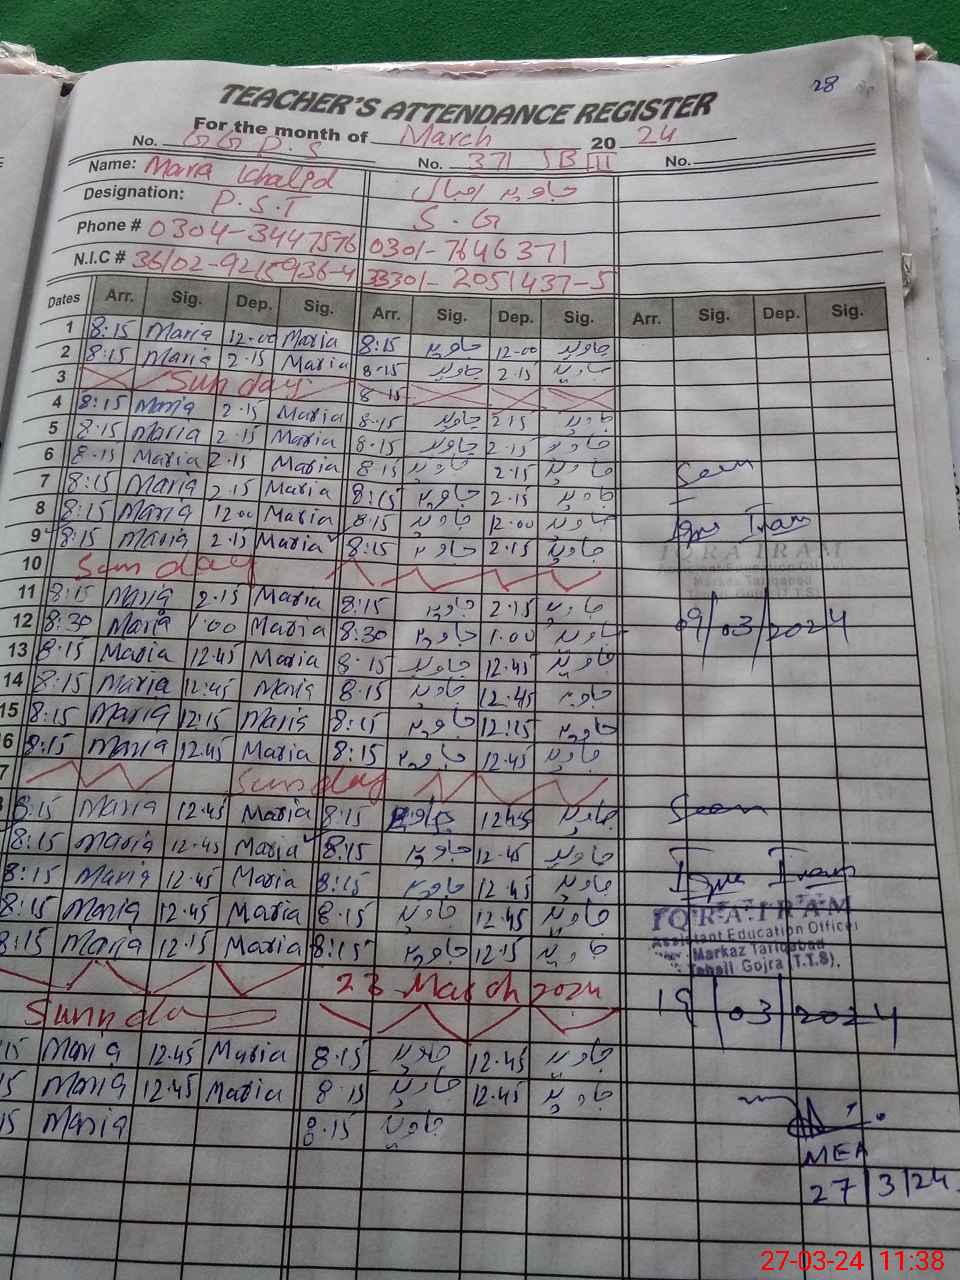 28
TEACHER'S ATTENDANCE REGISTER
For the month of March 2024
No. GGPS No. 371 JB III No.
Name: Maria Khalid جاوید اقبال
Designation: P.S.T S.G
Phone # 0304-3447576 0301-7646371
N.I.C # 36102-9215936-4 33301-2051437-5
Dates Arr. Sig. Dep. Sig. Arr. Sig. Dep. Sig. Arr. Sig. Dep. Sig.
1 8:15 Maria 12:00 Maria 8:15 جاوید 12:00 جاوید
2 8:15 Maria 2.15 Maria 8:15 جاوید 2.15 جاوید
3 Sunday 8:15
4 8:15 Maria 2.15 Maria 8:15 جاوید 2.15 جاوید
5 8:15 Maria 2.15 Maria 8:15 جاوید 2.15 جاوید
6 8:15 Maria 2.15 Maria 8:15 جاوید 2.15 جاوید Seen
7 8:15 Maria 2.15 Maria 8:15 جاوید 2.15 جاوید
8 8:15 Maria 12:00 Maria 8:15 جاوید 12:00 جاوید Iqra Iram
9 8:15 Maria 2.15 Maria 8:15 جاوید 2.15 جاوید IQRA IRAM
10 Sunday Assistant Education Officer
11 8:15 Maria 2.15 Maria 8:15 جاوید 2.15 جاوید
12 8:30 Maria 1:00 Maria 8:30 جاوید 1.00 جاوید 09/03/2024
13 8:15 Maria 12.45 Maria 8:15 جاوید 12.45 جاوید
14 8:15 Maria 12:45 Maria 8:15 جاوید 12.45 جاوید
15 8:15 Maria 12:15 Maria 8:15 جاوید 12.15 جاوید
16 8:15 Maria 12.45 Maria 8:15 جاوید 12.45 جاوید
7 Sunday
8:15 Maria 12.45 Maria 8:15 جاوید 12.45 جاوید Seen
8:15 Maria 12.45 Maria 8:15 جاوید 12.45 جاوید
8:15 Maria 12.45 Maria 8:15 جاوید 12.45 جاوید Iqra Iram
8:15 Maria 12.45 Maria 8:15 جاوید 12.45 جاوید IQRA IRAM
Assistant Education Officer
8:15 Maria 12.15 Maria 8:15 جاوید 12.15 جاوید Markaz Tariqabad
Tehsil Gojra (T.T.S).
23 March 2024
Sunnda 19/03/2024
15 Maria 12.45 Maria 8:15 جاوید 12.45 جاوید
5 Maria 12.45 Maria 8:15 جاوید 12.45 جاوید
15 Maria 8:15 جاوید
MEA
27/3/24
27-03-24 11:38